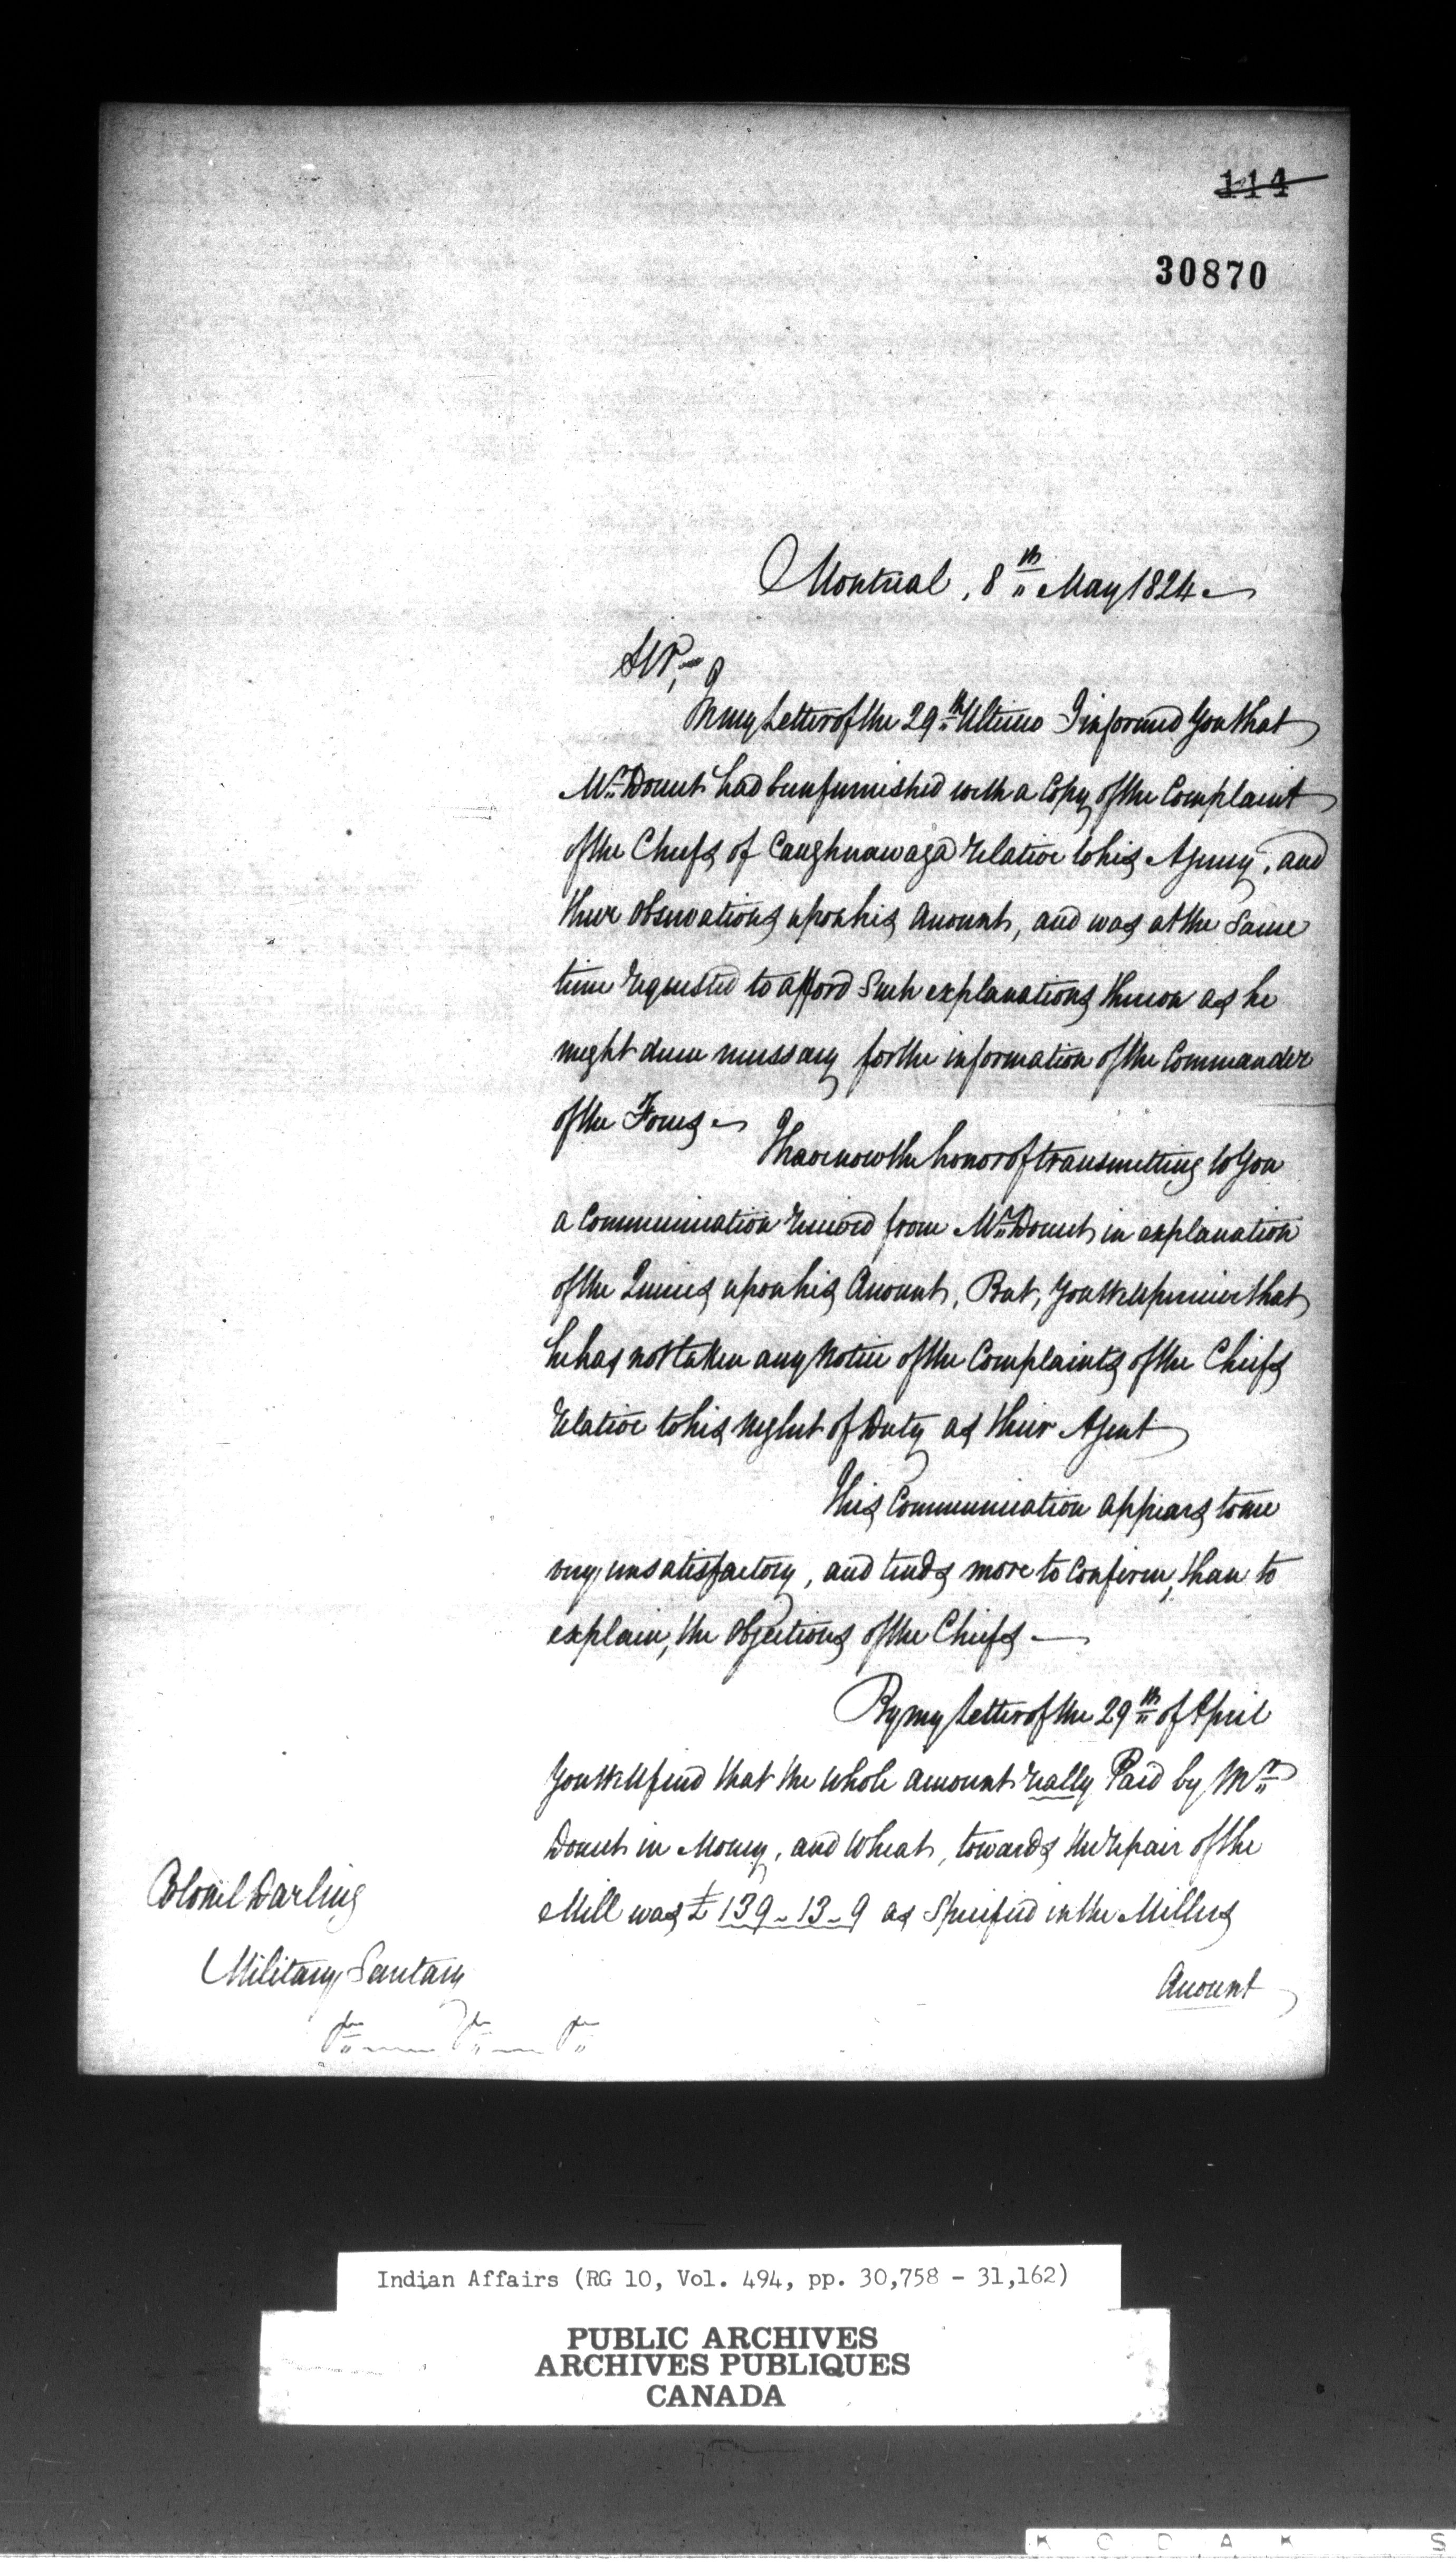 114
30870
Montreal, 8th May 1824
SIR,
In my Letter of the 29th Ultimo I informed You that
Mr Doucet had been furnished with a Copy of the Complaint
of the Chiefs of Caughnawaga relative to his Agency, and
their observations upon his Account, and was at the Same
time requested to afford Such explanations thereon as he
might deem necessary for the information of the Commander
of the Forces
I have now the honor of transmitting to You
a Communication received from Mr Doucet in explanation
of the Queries upon his Account, But, You will perceive that
he has not taken any Notice of the Complaints of the Chiefs
relative to his neglect of Duty as their Agent
This Communication appears to me
very unsatisfactory, and tends more to Confirm, than to
explain, the Objections of the Chiefs —
By my Letter of the 29th of April
You Will find that the whole amount really Paid by Mr
Doucet in Money, and Wheat, towards the repair of the
Mill was £139-13-9 as Specified in the Millers
Account
Colonel Darling
Military Secretary
Indian Affairs (RG 10, Vol. 494, pp. 30,758 - 31,162)
PUBLIC ARCHIVES
ARCHIVES PUBLIQUES
CANADA
K O D A K S